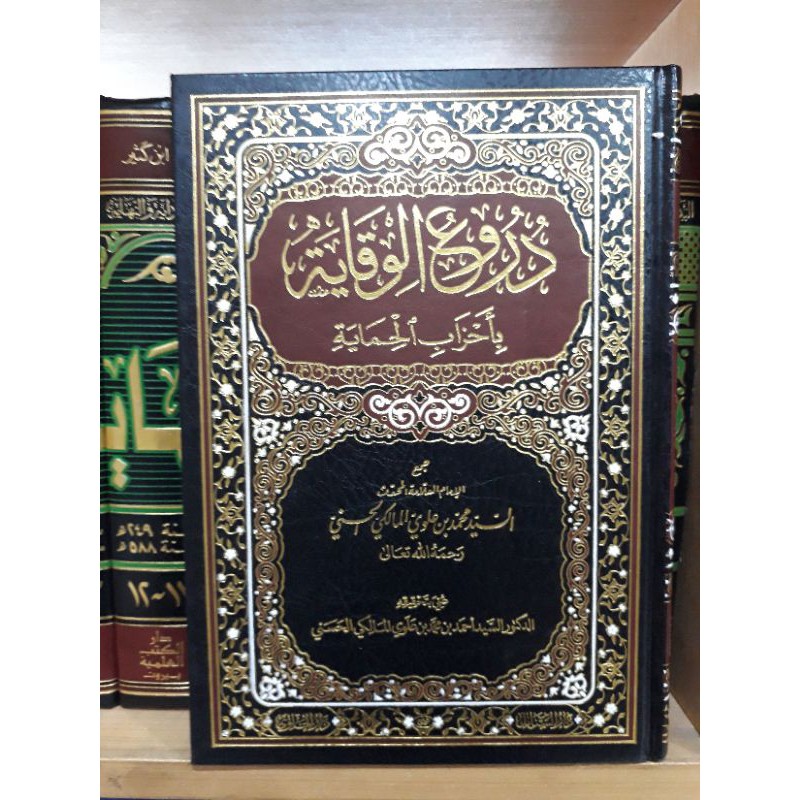 دُرُوعُ الْوِقَايَةِ
بِأَحْزَابِ الْحِمَايَةِ
جمع
الإمام العلامة المحدث
السيد محمد بن علوي المالكي الحسني
رحمه الله تعالى
الدكتور السيد أحمد بن محمد بن علوي المالكي الحسني
ابن كثير
سنة ٢٤٩ هـ
سنة ٥٨٨ هـ
دار
الكتب
العلمية
بيروت